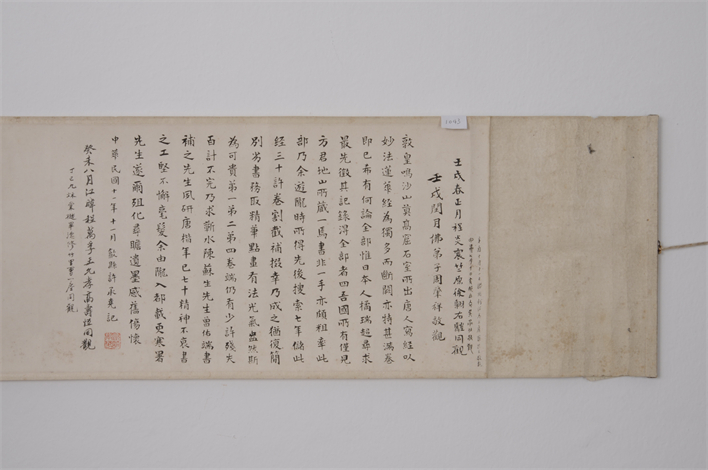 壬戌春正月程炎震 徐 石 同觀
壬戌閏月佛弟子周肇祥敬觀
敦皇鳴沙山莫高窟石室所出唐人寫經以
妙法蓮華經為獨多而斷闕亦特甚滿卷
即已希有何論全部惟日本人橘瑞超尋求
最先徵其記錄得全部者四吾國所有僅見
方君地山所藏一焉書非一手亦頗粗率此
部乃余遊隴時所得先後搜索七年儲此
經三十許卷割截補掇幸乃成之猶復簡
別劣書務取精筆點畫有法光氣盎然斯
為可貴第一第二第四卷端仍有少許殘失
百計不完乃求蘄水陳蘇生先生曾佑端書
補之先生夙研唐楷年已七十精神不衰書
之工堅不懈毫髮余由隴入都載更寒暑
先生遂爾殂化尋瞻遺墨感舊傷懷
中華民國十一年十一月歙縣許承堯記
癸未八月江暐程萬孚王九孝高壽恒同觀
同觀